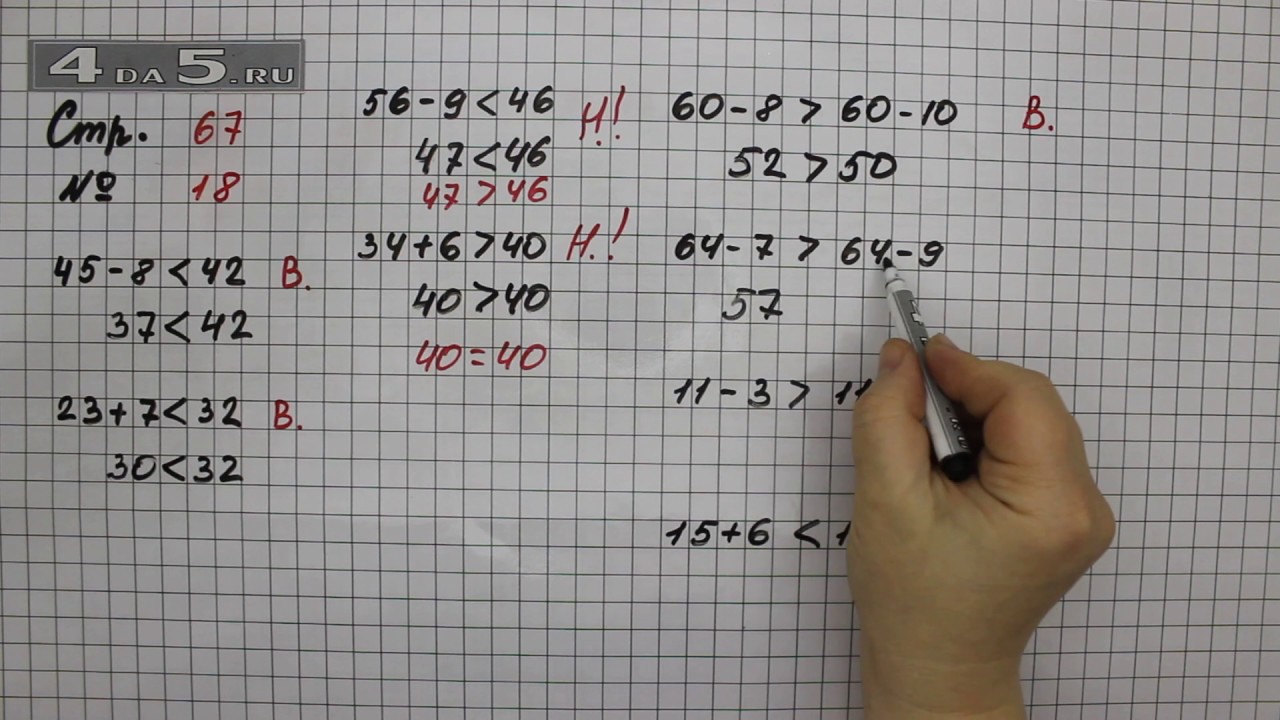 4DA5.RU
Стр. 67
№ 18
45-8<42 В.
37<42
23+7<32 В.
30<32
56-9<46 Н!
47<46
47>46
34+6>40 Н.!
40>40
40=40
60-8>60-10 В.
52>50
64-7>64-9
57
11-3>11
15+6<1